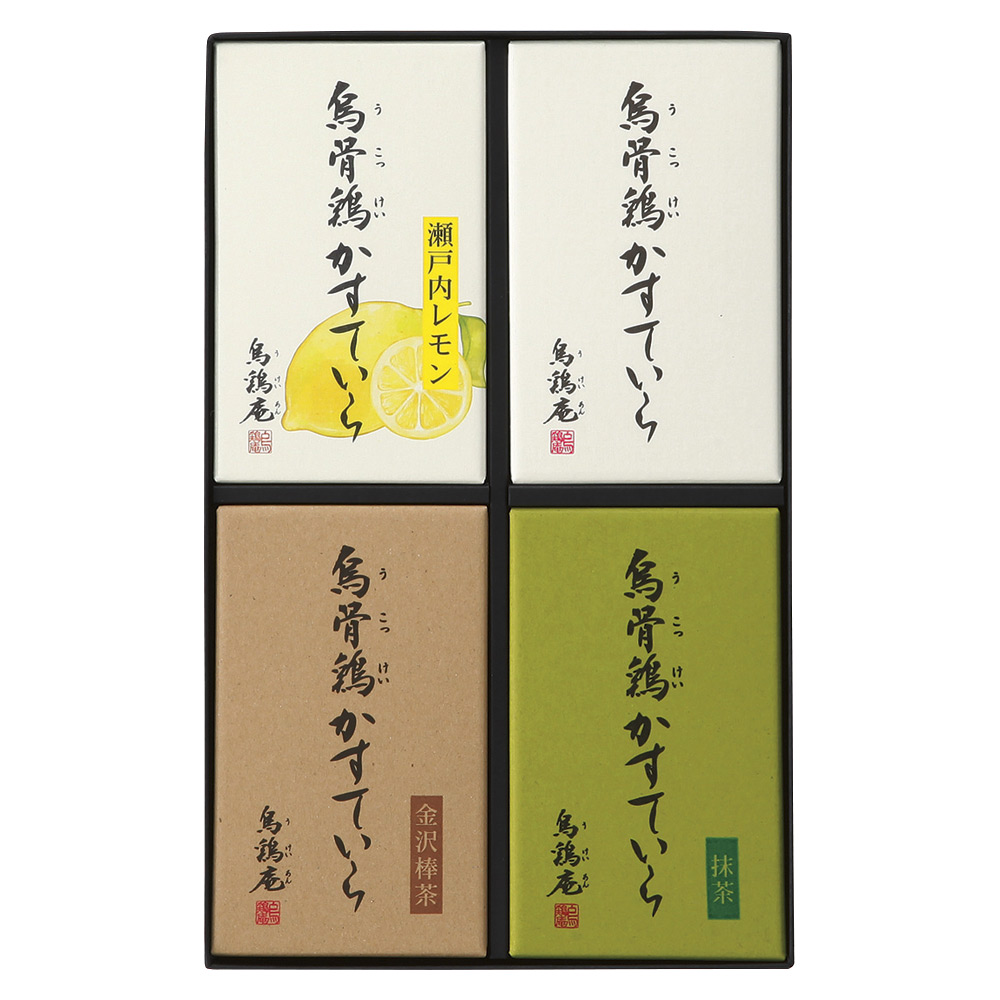 烏骨鶏かすていら
うこっけい
瀬戸内レモン
烏鶏庵
うけいあん
烏骨鶏かすていら
うこっけい
烏鶏庵
うけいあん
烏骨鶏かすていら
うこっけい
金沢棒茶
烏鶏庵
うけいあん
烏骨鶏かすていら
うこっけい
抹茶
烏鶏庵
うけいあん